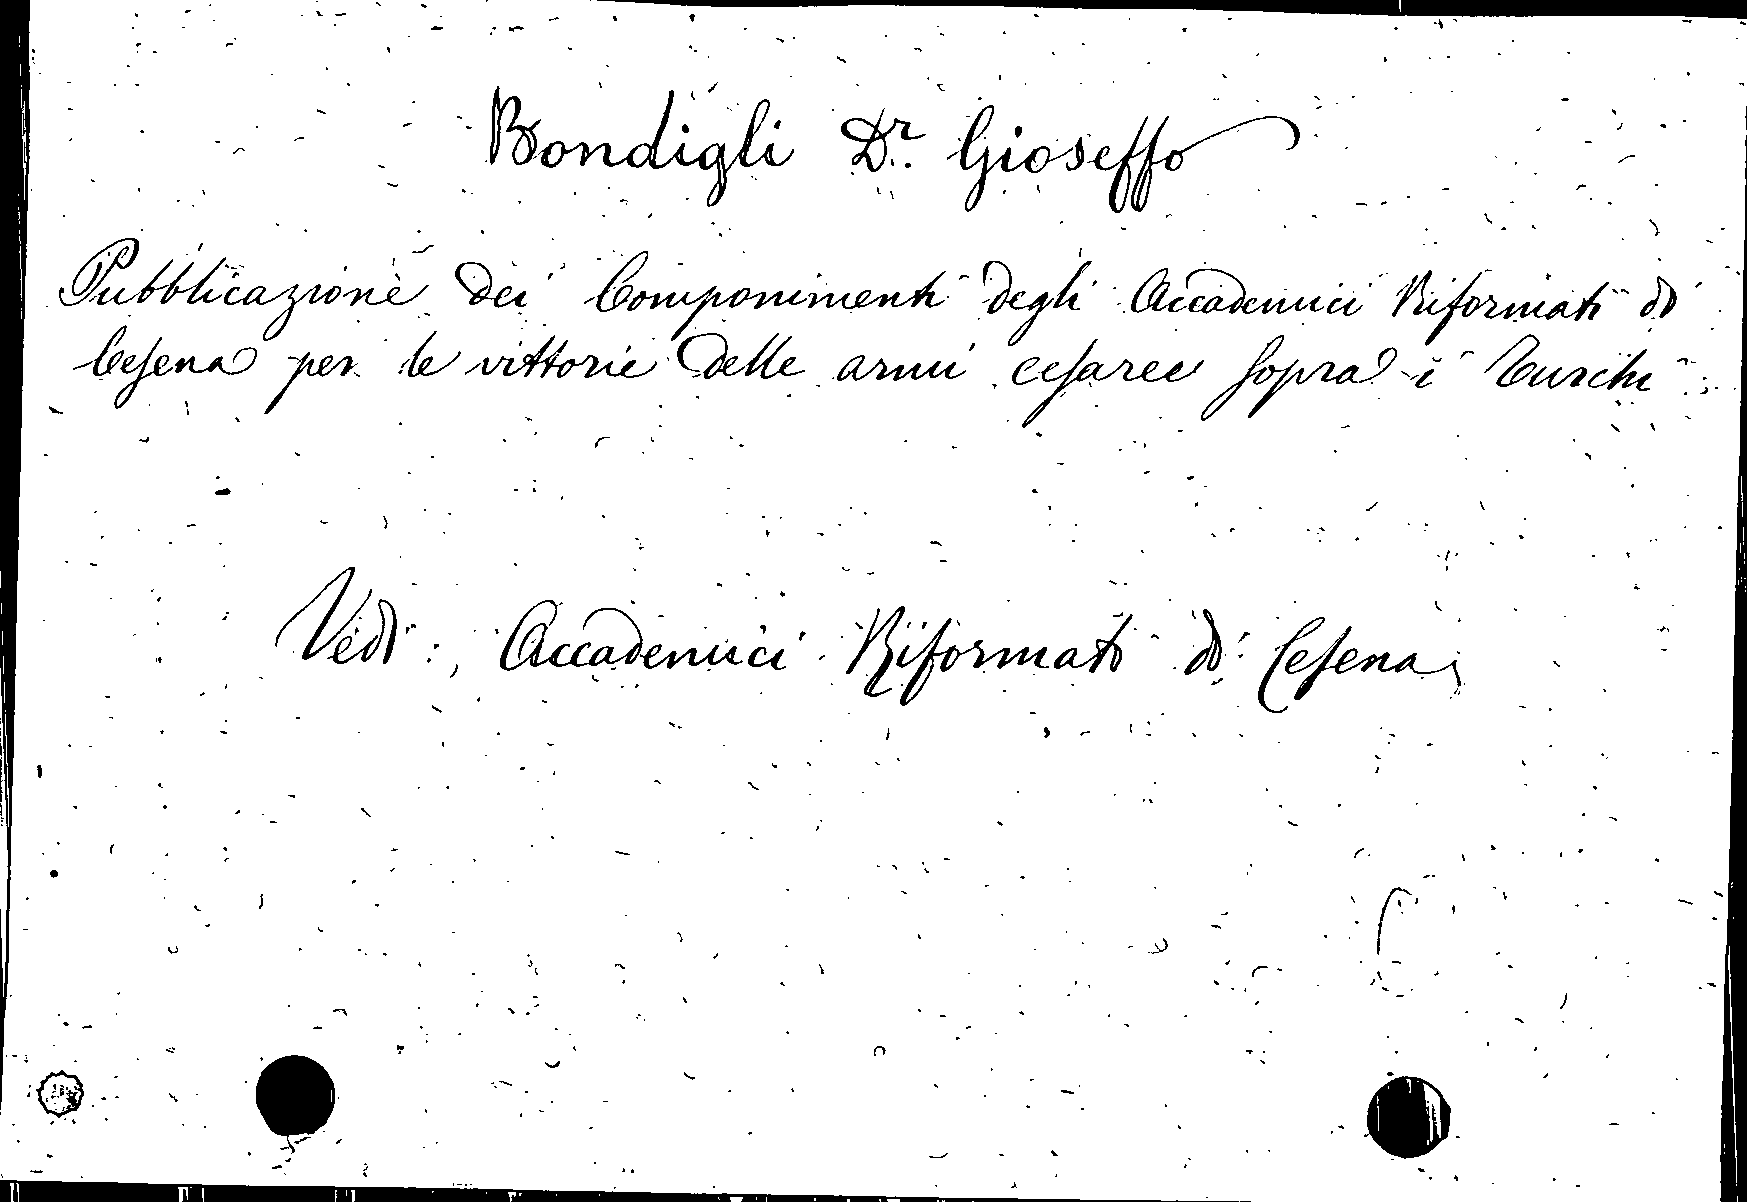 Bondigli Dr. Gioseffo
Pubblicazione dei Componimenti degli Accademici Riformati di
Cesena per le vittorie delle armi cesaree sopra i Turchi
Vedi: Accademici Riformati di Cesena